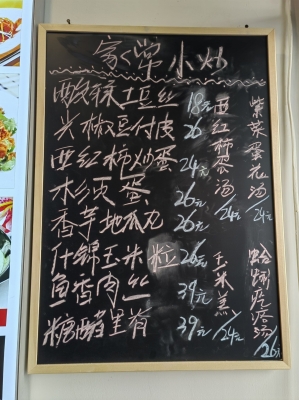 家常小炒
酸辣土豆丝 18元
尖椒豆付皮 26
西红柿炒蛋 24元
蛋 26元
香芋地瓜丸 26元
什锦玉米粒 26元
鱼香肉丝 39元
糖醋里脊 39元
西红柿蛋汤/24元
玉米羹/24元
紫菜蛋花汤/24元
蛤蜊疙瘩汤/26元